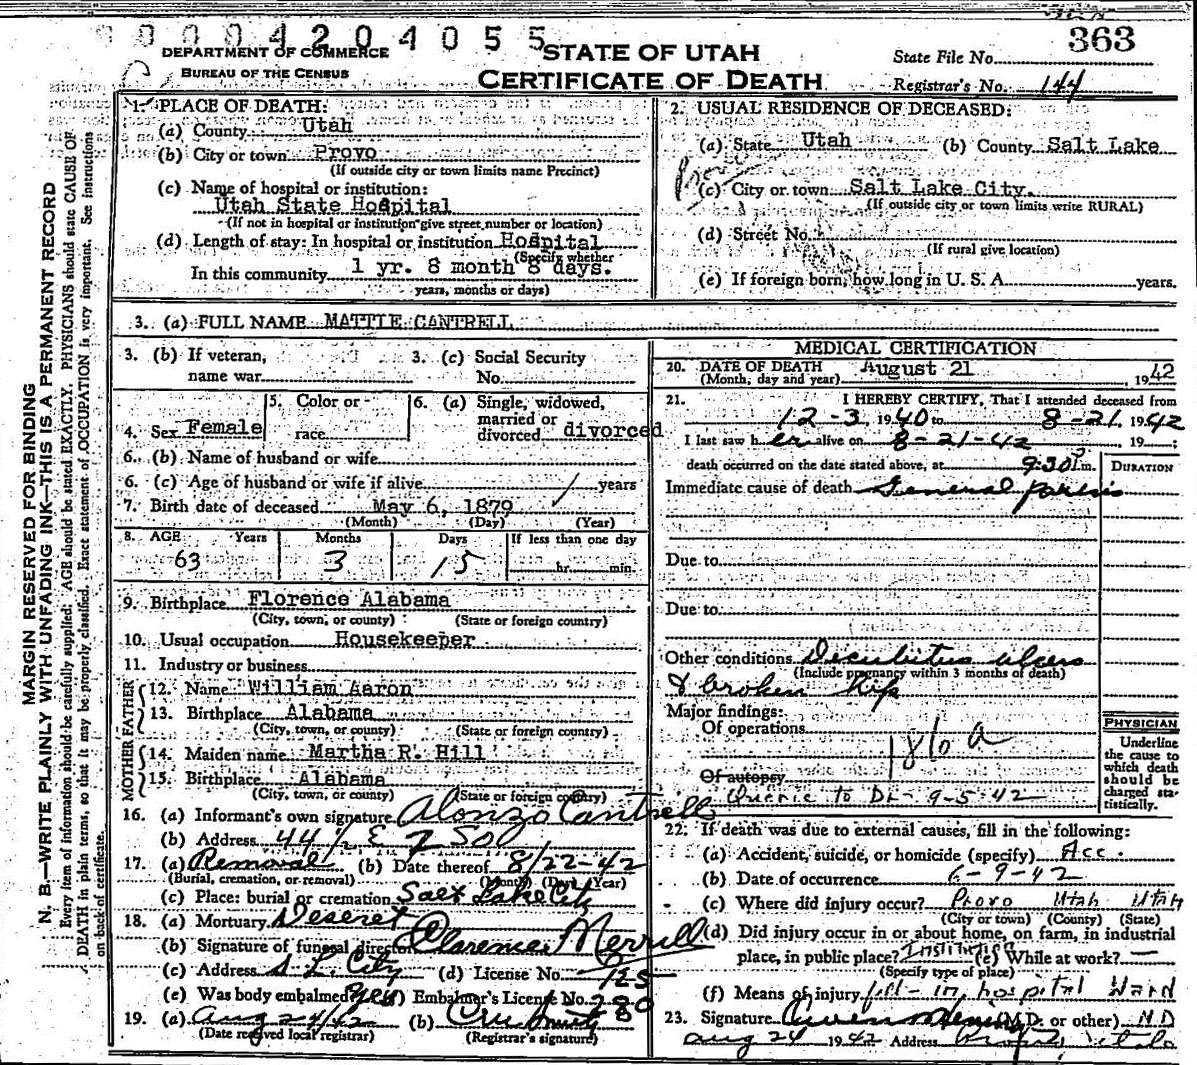 0004204055
DEPARTMENT OF COMMERCE
BUREAU OF THE CENSUS
STATE OF UTAH
CERTIFICATE OF DEATH
State File No. 363
Registrar's No. 144
MARGIN RESERVED FOR BINDING
N. B.—WRITE PLAINLY WITH UNFADING INK—THIS IS A PERMANENT RECORD
Every item of information should be carefully supplied. AGE should be stated EXACTLY. PHYSICIANS should state CAUSE OF
DEATH in plain terms, so that it may be properly classified. Exact statement of OCCUPATION is very important. See instructions
on back of certificate.
1. PLACE OF DEATH:
(a) County Utah
(b) City or town Provo
(If outside city or town limits name Precinct)
(c) Name of hospital or institution:
Utah State Hospital
(If not in hospital or institution give street number or location)
(d) Length of stay: In hospital or institution Hospital
(Specify whether
In this community 1 yr. 8 month 8 days.
years, months or days)
2. USUAL RESIDENCE OF DECEASED:
(a) State Utah (b) County Salt Lake
(c) City or town Salt Lake City.
(If outside city or town limits write RURAL)
(d) Street No.
(If rural give location)
(e) If foreign born, how long in U. S. A. years.
3. (a) FULL NAME MATTIE CANTRELL
3. (b) If veteran,
name war
3. (c) Social Security
No.
4. Sex Female
5. Color or
race
6. (a) Single, widowed,
married or
divorced divorced
6. (b) Name of husband or wife
6. (c) Age of husband or wife if alive years
7. Birth date of deceased May 6, 1879
(Month) (Day) (Year)
8. AGE Years Months Days If less than one day
63 3 15 hr. min.
9. Birthplace Florence Alabama
(City, town, or county) (State or foreign country)
10. Usual occupation Housekeeper
11. Industry or business
FATHER
12. Name William Aaron
13. Birthplace Alabama
(City, town, or county) (State or foreign country)
MOTHER
14. Maiden name Martha R. Hill
15. Birthplace Alabama
(City, town, or county) (State or foreign country)
16. (a) Informant's own signature Alonzo Cantrell
(b) Address 44½ E 7 SOO
17. (a) Removal (b) Date thereof 8/22-42
(Burial, cremation, or removal) (Month) (Day) (Year)
(c) Place: burial or cremation Salt Lake City
18. (a) Mortuary Deseret
(b) Signature of funeral director Clarence Merrill
(c) Address S. L. City (d) License No. 125
(e) Was body embalmed? yes (f) Embalmer's License No. 280
19. (a) Aug 24/42 (b)
(Date received local registrar) (Registrar's signature)
MEDICAL CERTIFICATION
20. DATE OF DEATH August 21, 1942
(Month, day and year)
21. I HEREBY CERTIFY, That I attended deceased from
12-3, 1940 to 8-21, 1942
I last saw her alive on 8-21-42 19
death occurred on the date stated above, at 9:30 P.m.
DURATION
Immediate cause of death General paresis
Due to
Due to
Other conditions Decubitus ulcers
(Include pregnancy within 3 months of death)
& broken hip
Major findings:
Of operations
186a
Of autopsy
Querie to Dr - 9-5-42
PHYSICIAN
Underline
the cause to
which death
should be
charged sta-
tistically.
22. If death was due to external causes, fill in the following:
(a) Accident, suicide, or homicide (specify) Acc.
(b) Date of occurrence 6-9-42
(c) Where did injury occur? Provo Utah Utah
(City or town) (County) (State)
(d) Did injury occur in or about home, on farm, in industrial
place, in public place? Institution (e) While at work? —
(Specify type of place)
(f) Means of injury fell - in hospital Ward
23. Signature (M.D. or other) M D
Aug 24 1942 Address Provo, Utah